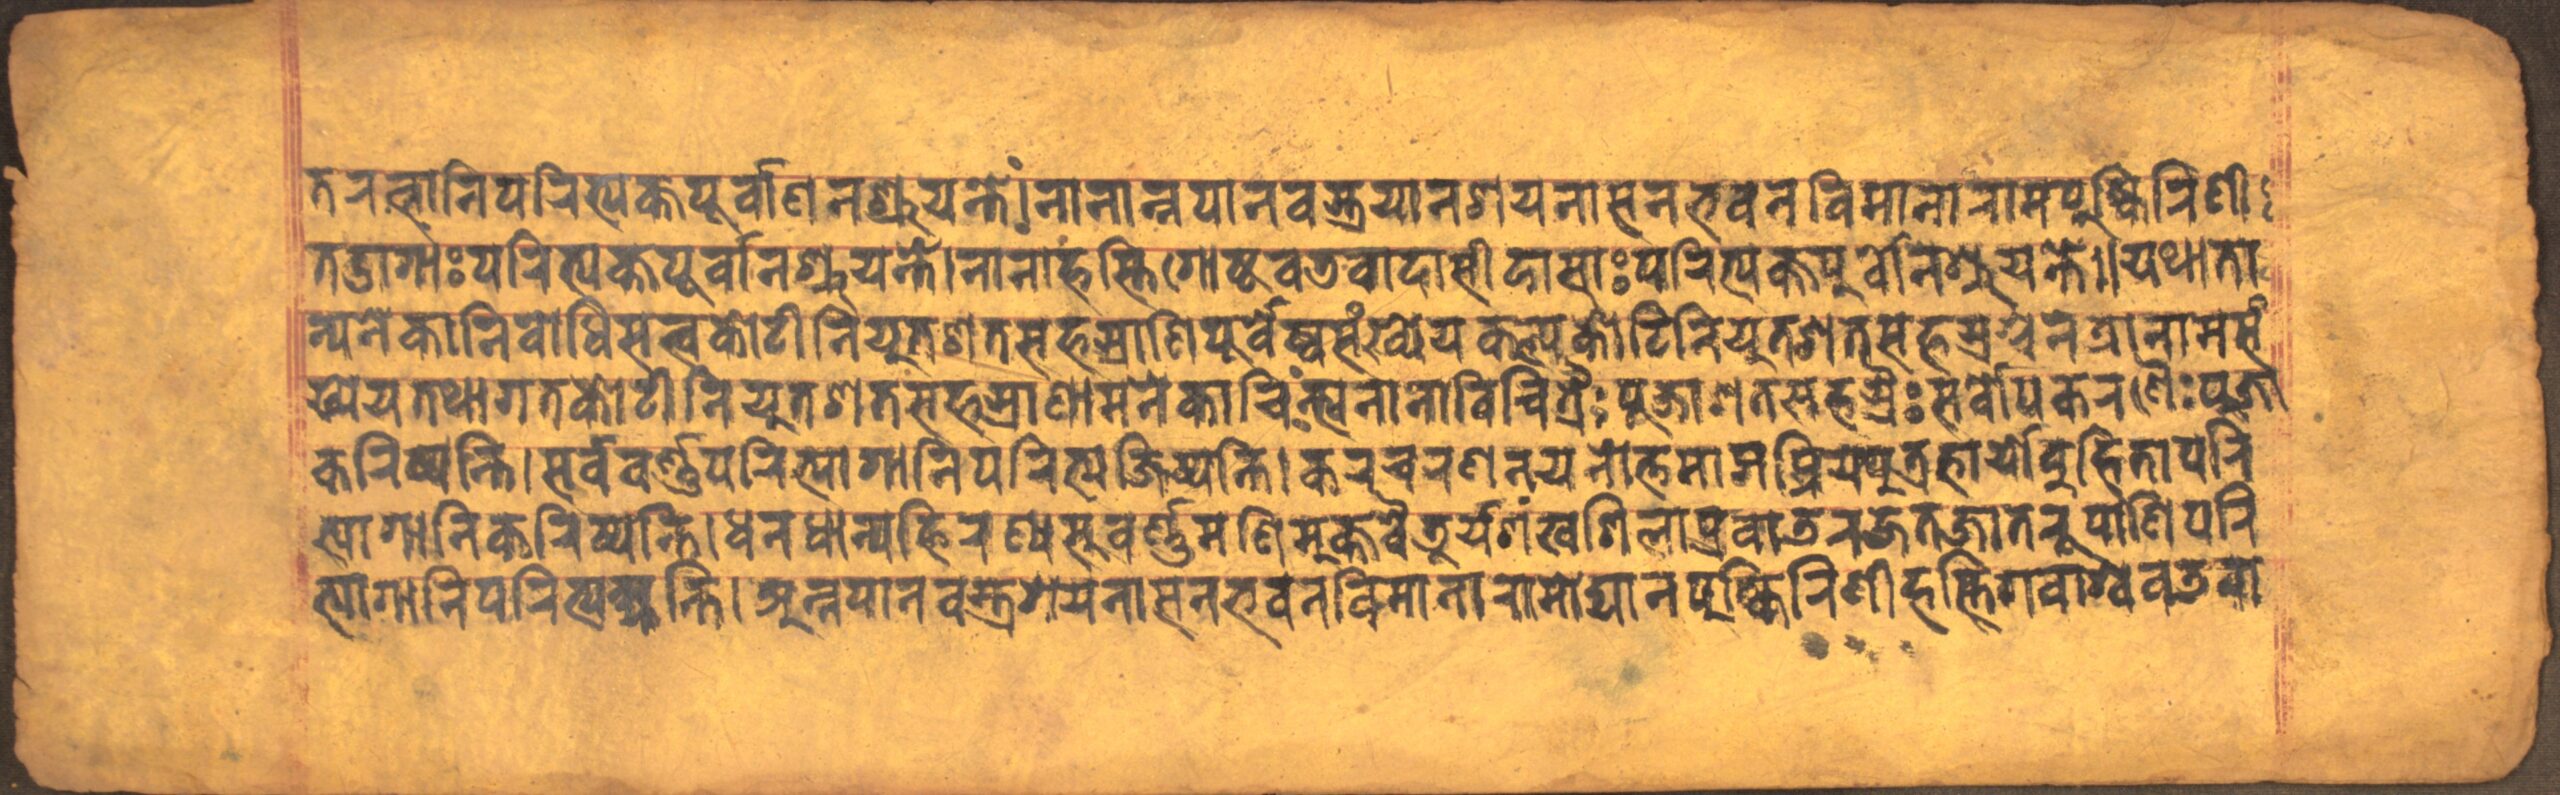 तरत्नानिपरित्यक्तपूर्वाणनश्रूयन्ते।नानान्नपानवस्त्रयानशयनासनभवनविमानारामपुष्किरिणीः
तडागाःपरित्यक्तपूर्वानश्रूयन्ते।नानाहस्तिगोष्टवडवादासीदासाःपरित्यक्तपूर्वानश्रूयन्ते॥यथाता
न्यनेकानिबोधिसत्वकोटीनियुतशतसहस्राणिपूर्वेष्वसंख्येयकल्पकोटिनियुतशतसहस्र
ख्येयतथागतकोटीनियुतशतसहस्राणामनेकाचिंत्यनानाविचित्रैःपूजाशतसहस्रैःसर्वोपकरणैःपूजां
करिष्यन्ति।सर्ववर्ण्णपरित्यागानिपरित्यजिष्यन्ति।करचरणनयनोत्तमाङ्गप्रियपुत्रभार्यादुहितापरि
त्यागानिकरिष्यन्ति।धनधान्यहिरण्यसुवर्ण्णमणिमुक्तवैडूर्यशंखशिलाप्रवाडरजतजातरूपाणिपरि
त्यागानिपरित्यक्ष्यन्ति।अन्नपानवस्त्रशयनासनभवनविमानारामोद्यानपुष्किरिणीहस्तिगवाश्ववडवा